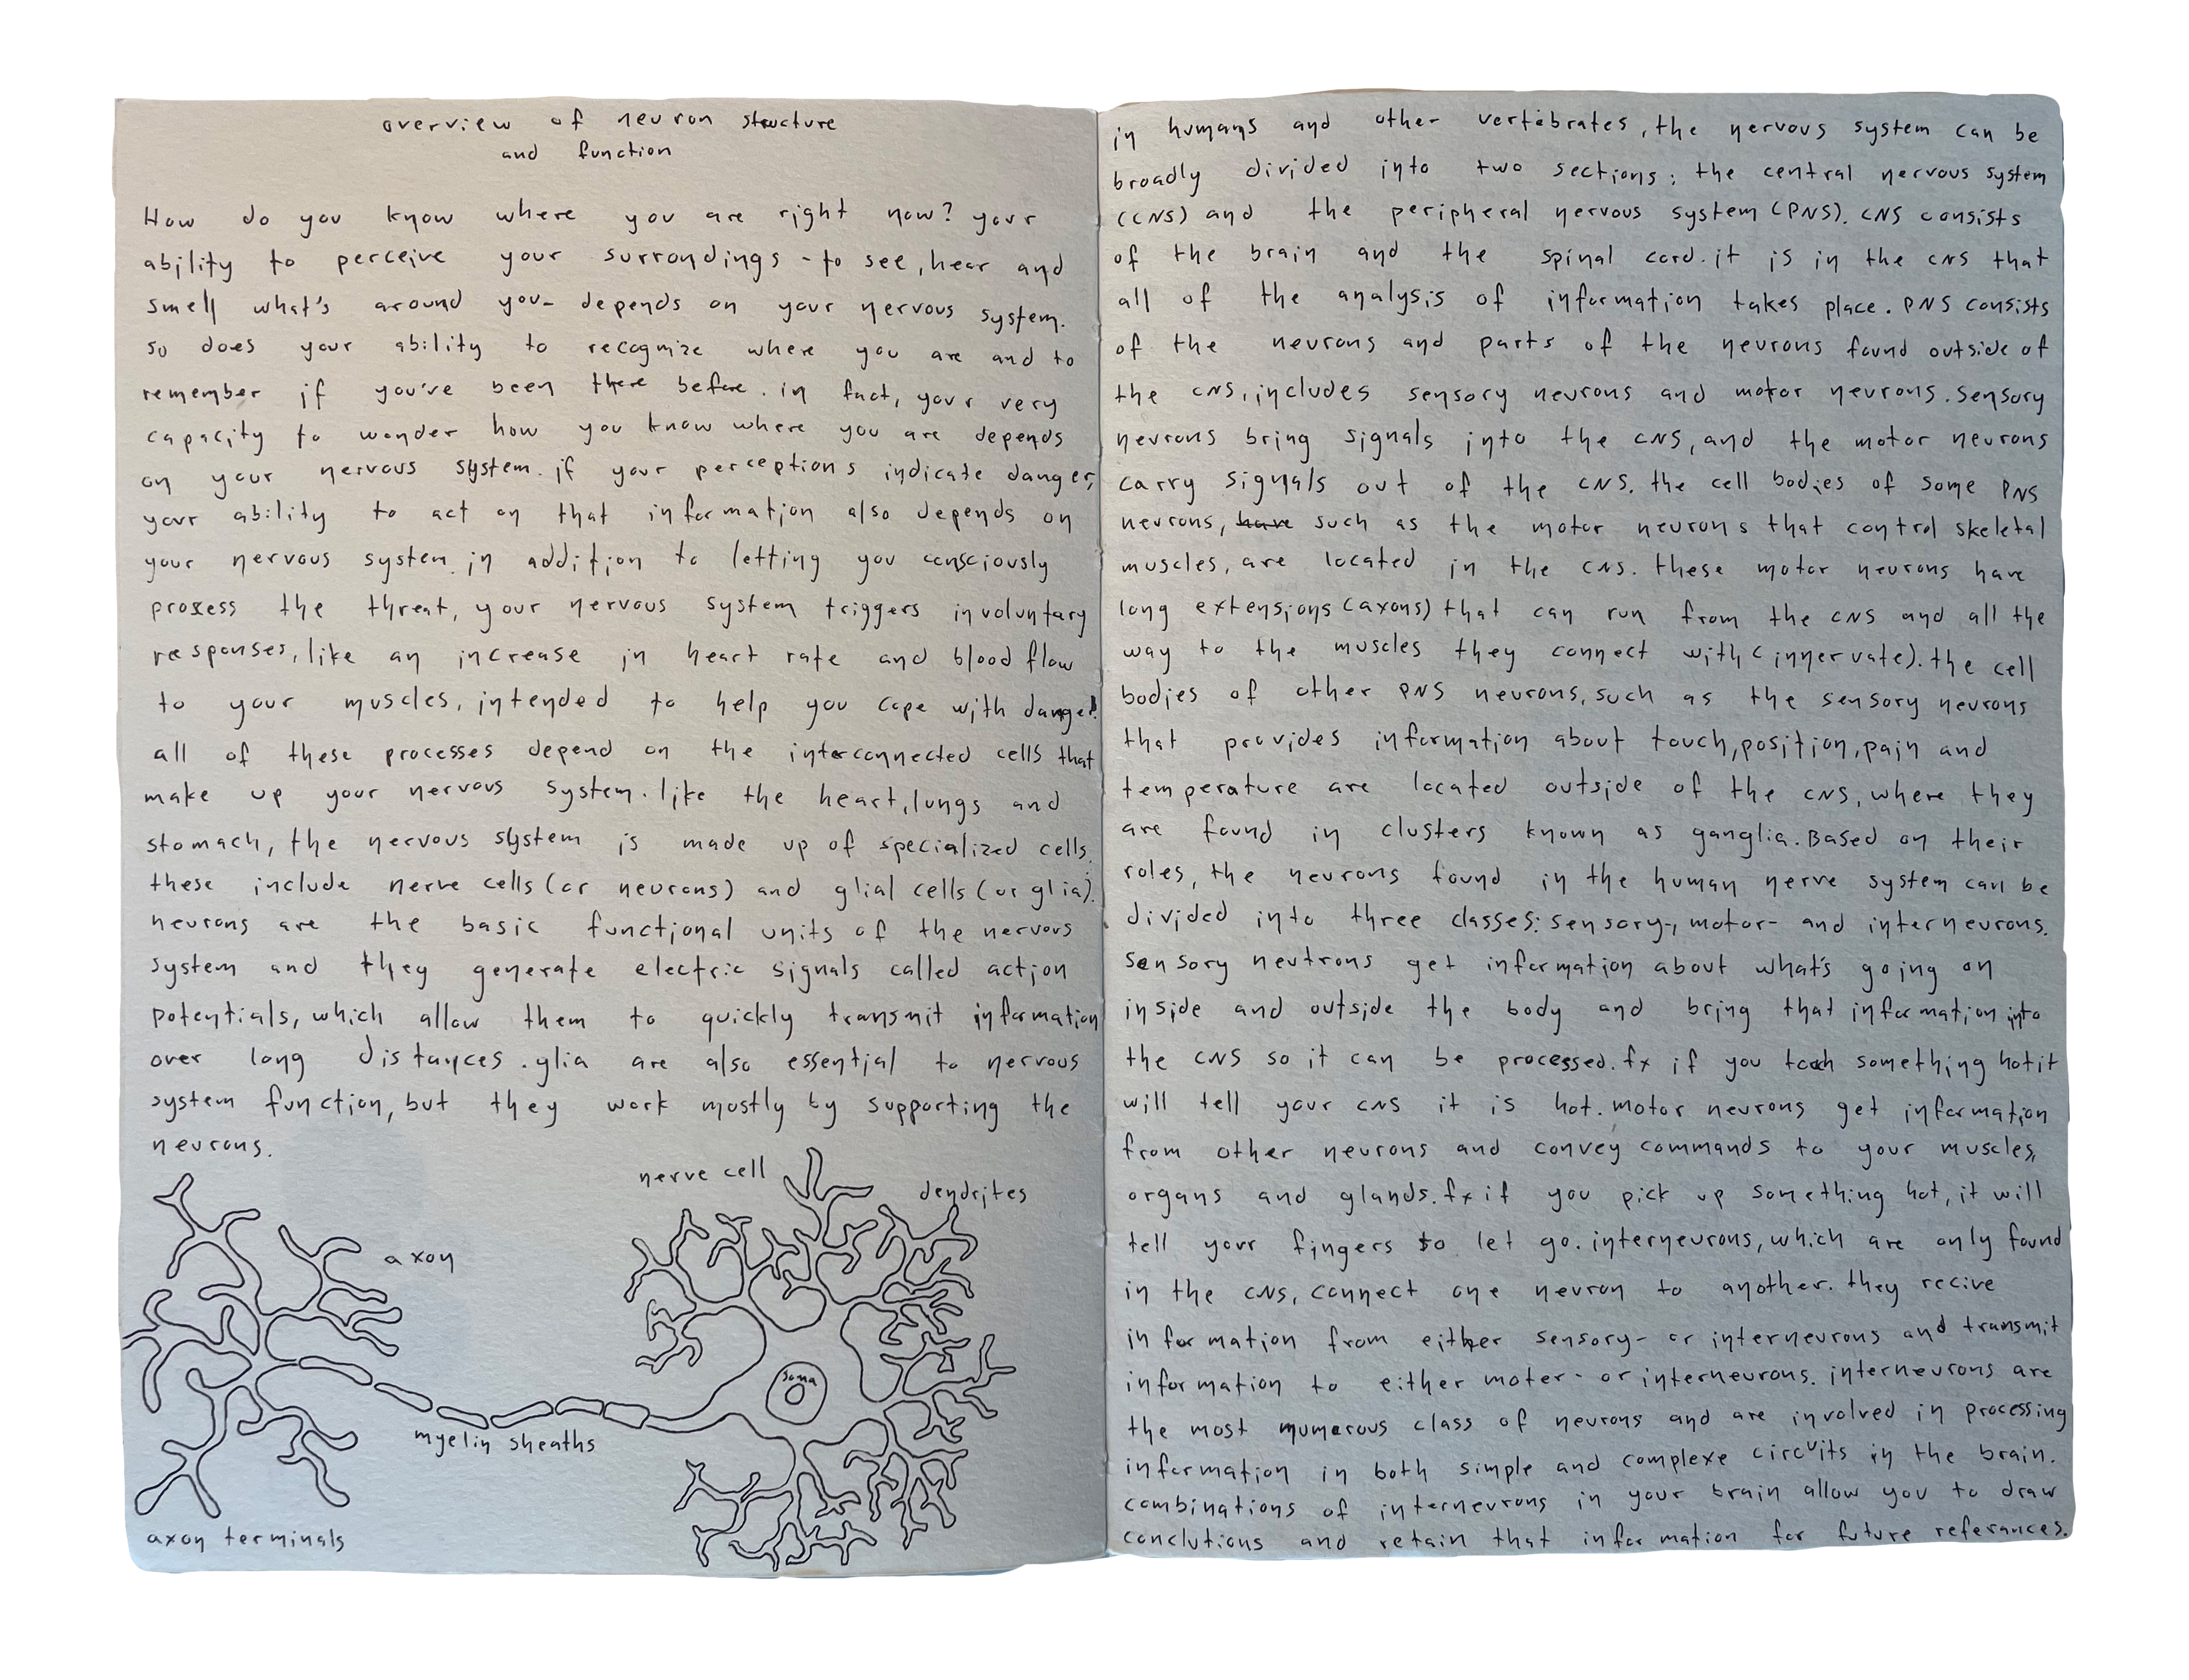 overview of neuron structure
and function
How do you know where you are right now? your
ability to perceive your surrondings - to see, hear and
smell what's around you- depends on your nervous system.
so does your ability to recognize where you are and to
remember if you've been there before. in fact, your very
capacity to wonder how you know where you are depends
on your nervous system. if your perceptions indicate danger,
your ability to act on that information also depends on
your nervous system. in addition to letting you consciously
process the threat, your nervous system triggers involuntary
responses, like an increase in heart rate and blood flow
to your muscles, intended to help you cope with danger.
all of these processes depend on the interconnected cells that
make up your nervous system. like the heart, lungs and
stomach, the nervous system is made up of specialized cells.
these include nerve cells (or neurons) and glial cells (or glia).
neurons are the basic functional units of the nervous
system and they generate electric signals called action
potentials, which allow them to quickly transmit information
over long distances. glia are also essential to nervous
system function, but they work mostly by supporting the
neurons.
nerve cell
dendrites
axon
soma
myelin sheaths
axon terminals
in humans and other vertebrates, the nervous system can be
broadly divided into two sections: the central nervous system
(CNS) and the peripheral nervous system (PNS). CNS consists
of the brain and the spinal cord. it is in the CNS that
all of the analysis of information takes place. PNS consists
of the neurons and parts of the neurons found outside of
the CNS, includes sensory neurons and motor neurons. Sensory
neurons bring signals into the CNS, and the motor neurons
carry signals out of the CNS. the cell bodies of some PNS
neurons, have such as the motor neurons that control skeletal
muscles, are located in the CNS. these motor neurons have
long extensions (axons) that can run from the CNS and all the
way to the muscles they connect with (innervate). the cell
bodies of other PNS neurons, such as the sensory neurons
that provides information about touch, position, pain and
temperature are located outside of the CNS, where they
are found in clusters known as ganglia. Based on their
roles, the neurons found in the human nerve system can be
divided into three classes: sensory-, motor- and interneurons.
Sensory neutrons get information about what's going on
inside and outside the body and bring that information into
the CNS so it can be processed. fx if you touch something hot it
will tell your CNS it is hot. motor neurons get information
from other neurons and convey commands to your muscles,
organs and glands. fx if you pick up something hot, it will
tell your fingers to let go. interneurons, which are only found
in the CNS, connect one neuron to another. they recive
information from either sensory- or interneurons and transmit
information to either moter- or interneurons. interneurons are
the most numerous class of neurons and are involved in processing
information in both simple and complexe circuits in the brain.
combinations of interneurons in your brain allow you to draw
conclutions and retain that information for future referances.